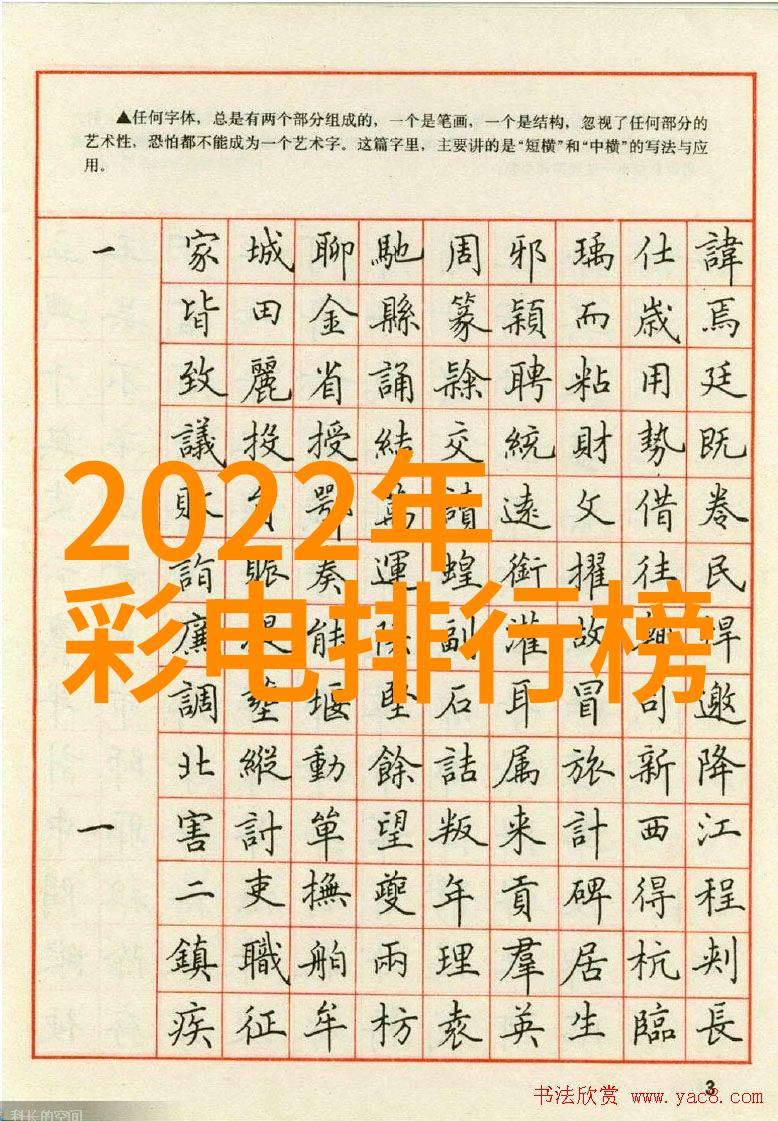 ▲任何字体，总是有两个部分组成的，一个是笔画，一个是结构，忽视了任何部分的
艺术性，恐怕都不能成为一个艺术字。这篇字里，主要讲的是“短横”和“中横”的写法与应
用。
一 家 城 聊 馳 周 邪 瑀 仕 諱
皆 田 金 縣 篆 穎 而 歲 焉
致 麗 省 誦 隸 聘 粘 用 廷
議 投 授 結 交 統 財 勢 既
敗 鄂 萬 請 遠 文 借 卷
詣 賑 奏 運 蝗 銜 擢 往 民
廉 能 副 灌 故 悍
調 堰 堅 石 耳 冒 司 邀
北 縱 動 餘 詰 属 旅 新 降
一 害 討 單 望 叛 来 計 西 江
二 吏 撫 夔 年 貢 碑 得 程
鎮 職 舶 兩 理 羣 居 杭 刺
疾 征 牟 枋 袁 英 生 臨 長
2022年
彩电排行榜
3
书法欣赏 www.yac8.com
科长的空间